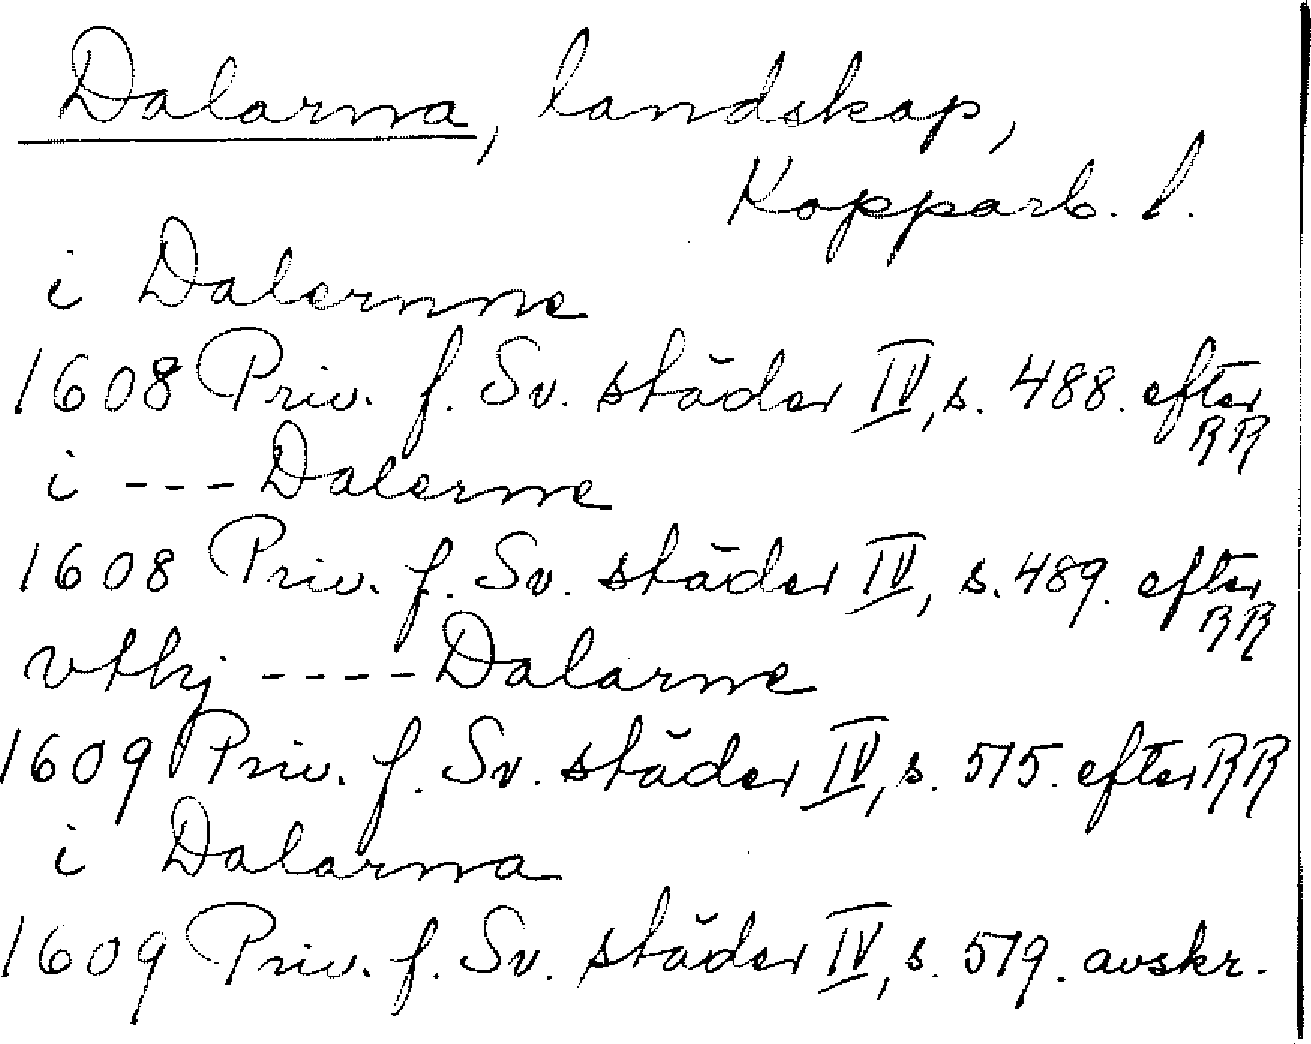 Dalarna, landskap,
Kopparb. l.
i Dalernne
1608 Priv. f. Sv. städer IV, s. 488. efter
RR
i --- Dalerne
1608 Priv. f. Sv. städer IV, s. 489. efter
RR
vthj ---- Dalarne
1609 Priv. f. Sv. städer IV, s. 515. efter RR
i Dalarna
1609 Priv. f. Sv. städer IV, s. 519. avskr.